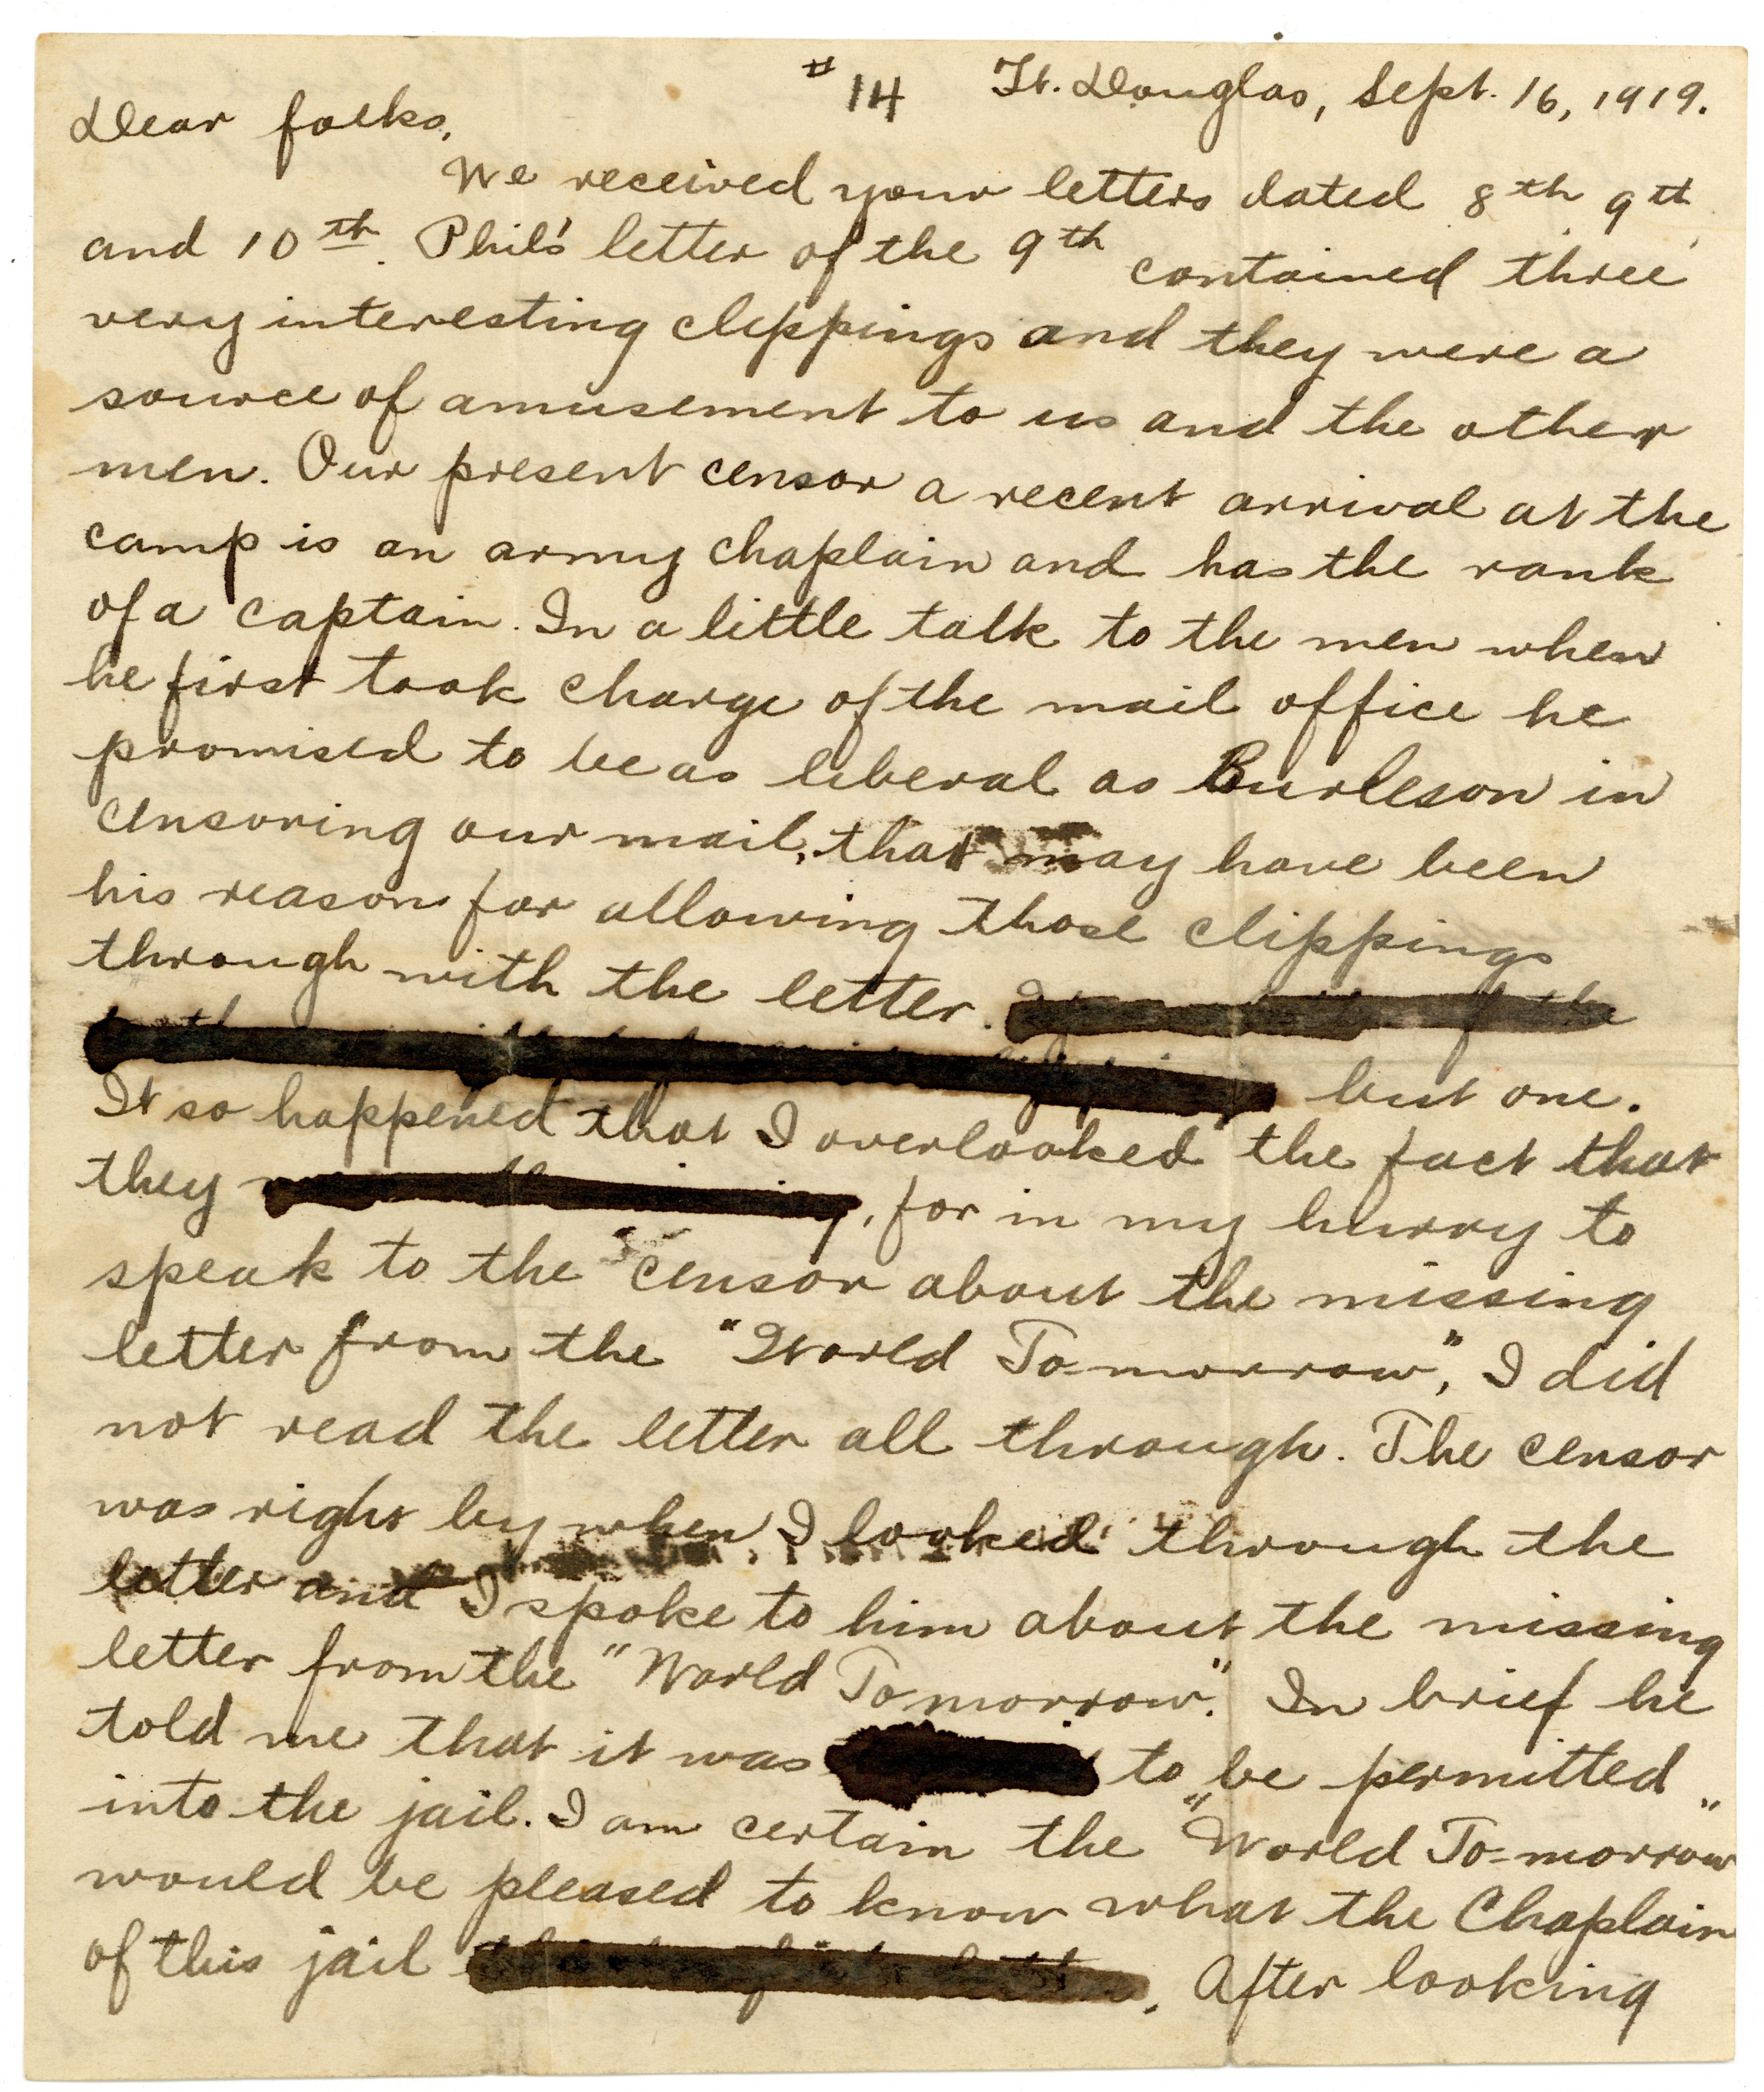 #14 Ft. Douglas, Sept. 16, 1919.
Dear folks,
We received your letters dated 8th, 9th,
and 10th. Phil's letter of the 9th contained three
very interesting clippings and they were a
source of amusement to us and the other
men. Our present censor a recent arrival at the
camp is an army chaplain and has the rank
of a captain. In a little talk to the men when
he first took charge of the mail office he
promised to be as liberal as Burleson in
censoring our mail, that may have been
his reason for allowing those clippings
through with the letter.
but one.
It so happened that I overlooked the fact that
they , for in my hurry to
speak to the censor about the missing
letter from the "World To-morrow", I did
not read the letter all through. The censor
was right by when I looked through the
letter and I spoke to him about the missing
letter from the "World Tomorrow". In brief he
told me that it was to be permitted
into the jail. I am certain the "World To-morrow"
would be pleased to know what the Chaplain
of this jail . After looking